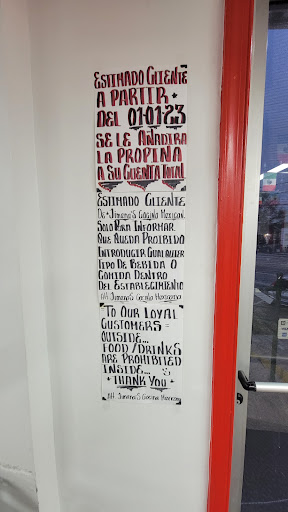 ESTIMADO CLIENTE
A PARTIR
DEL 01-01-23
SE LE AÑADIRA
LA PROPINA
A SU CUENTA TOTAL
ESTIMADO CLIENTE
DE Jimena's Cocina Mexican
SOLO PARA INFORMAR
QUE QUEDA PROIBIDO
INTRODUCIR CUALQUIER
TIPO DE BEBIDA O
COMIDA DENTRO
DEL ESTABLECIMIENTO
Att Jimena's Cocina Mexicana
TO OUR LOYAL
CUSTOMERS =
OUTSIDE...
FOOD/DRINKS
ARE PROHIBITED
INSIDE...
THANK YOU
Att Jimena's Cocina Mexican